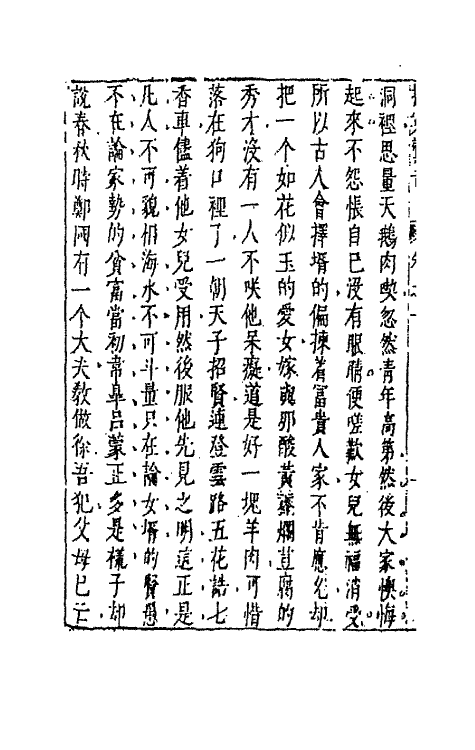 洞裡思量天鵝肉喫忽然青年高第然後大家懊悔
起來不怨悵自己沒有眼睛便嗟歎女兒無福消受
所以古人會擇壻的偏揀着富貴人家不肯應允却
把一个如花似玉的愛女嫁與那酸黃虀爛荳腐的
秀才沒有一人不咲他呆癡道是好一塊羊肉可惜
落在狗口裡了一朝天子招賢連登雲路五花誥七
香車儘着他女兒受用然後服他先見之明這正是
凡人不可貌相海水不可斗量只在論女壻的賢愚
不在論家勢的貧富當初常皐呂蒙正多是樣子却
說春秋時鄭國有一个大夫敎做徐吾犯父母已亡